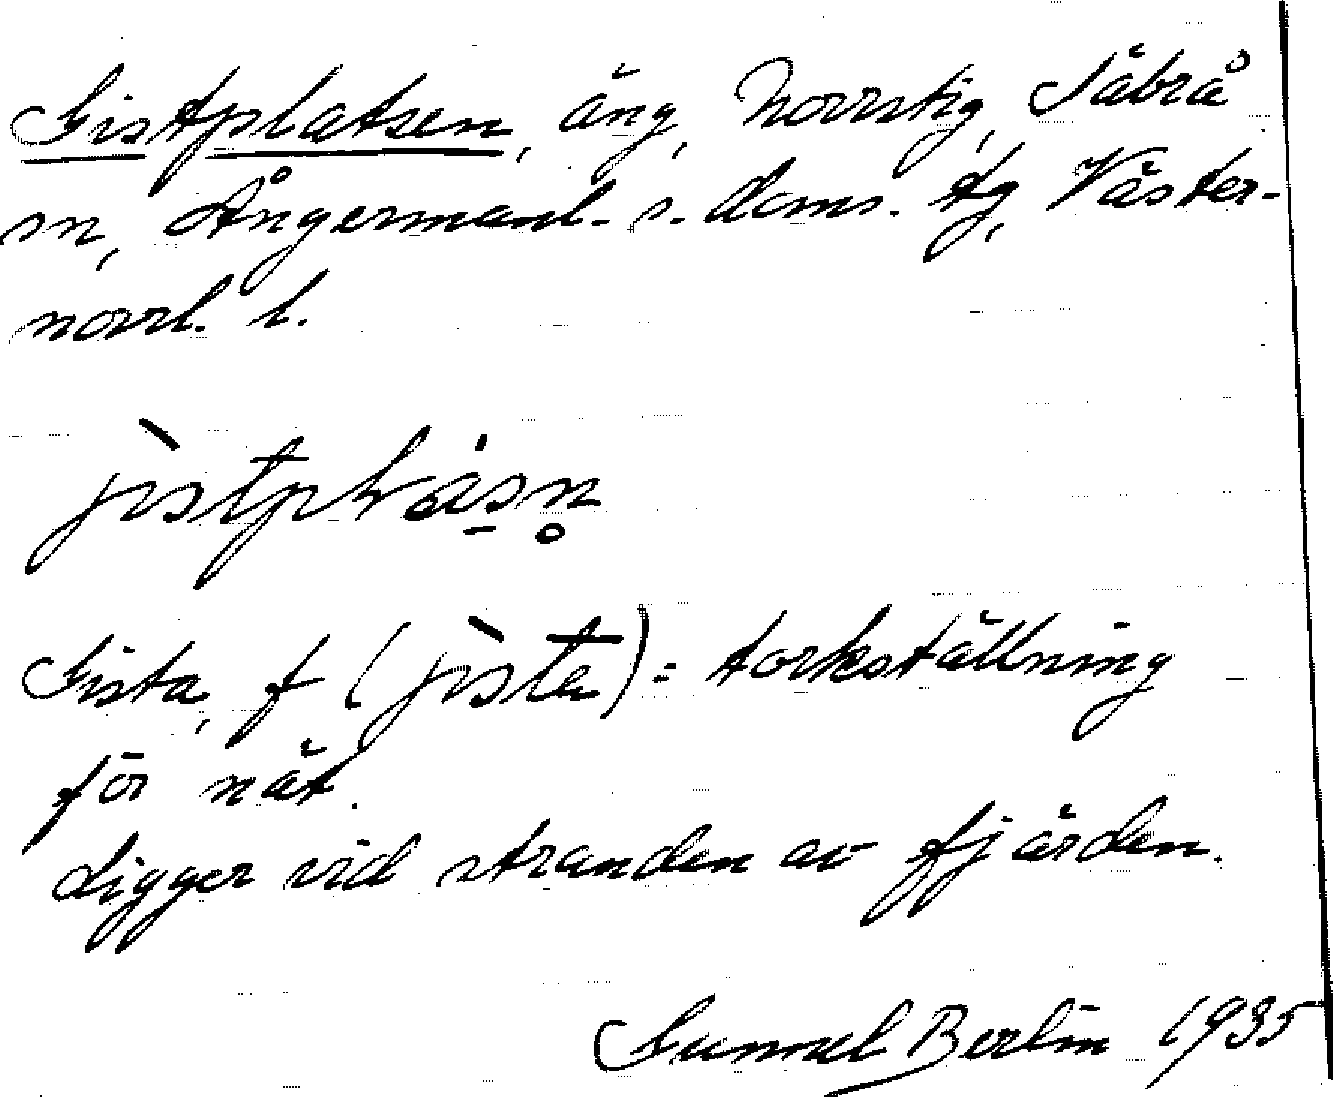 Gistplatsen, äng, Norrstig, Säbrå
sn, Ångermanl. s. doms. tg, Väster-
norrl. l.
Gista, f (jìsta) = torkställning
för nät.
Ligger vid stranden av fjärden.
Gunnel Berlin 1935